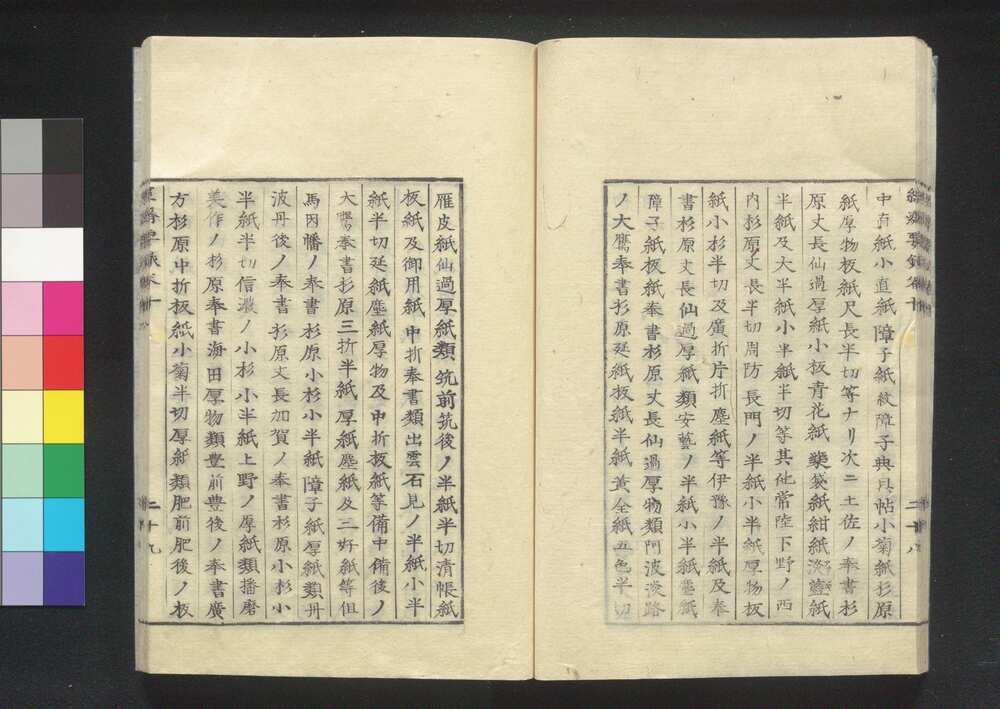 中直紙小直紙障子紙紋障子典具帖小菊紙杉原
紙厚物板紙尺長半切等ナリ次ニ土佐ノ奉書杉
原丈長仙過厚紙小板青花紙藥袋紙紺紙澁藍紙
半紙及大半紙小半紙半切等其他常陸下野ノ西
内杉原丈長半切周防長門ノ半紙小半紙厚物板
紙小杉半切及廣折片折塵紙等伊豫ノ半紙及奉
書杉原丈長仙過厚紙類安藝ノ半紙小半紙塵紙
障子紙板紙奉書杉原丈長仙過厚物類阿波淡路
ノ大鷹奉書杉原延紙板紙半紙黄金紙五色半切
二十八
雁皮紙仙過厚紙類筑前筑後ノ半紙半切清帳紙
板紙及御用紙中折奉書類出雲石見ノ半紙小半
紙半切延紙塵紙厚物及中折板紙等備中備後ノ
大鷹奉書杉原三折半紙厚紙塵紙及三好紙等但
馬因幡ノ奉書杉原小杉小半紙障子紙厚紙類丹
波丹後ノ奉書杉原丈長加賀ノ奉書杉原小杉小
半紙半切信濃ノ小杉小半紙上野ノ厚紙類播磨
美作ノ杉原奉書海田厚物類豊前豊後ノ奉書廣
方杉原中折板紙小菊半切厚紙類肥前肥後ノ板
二十九